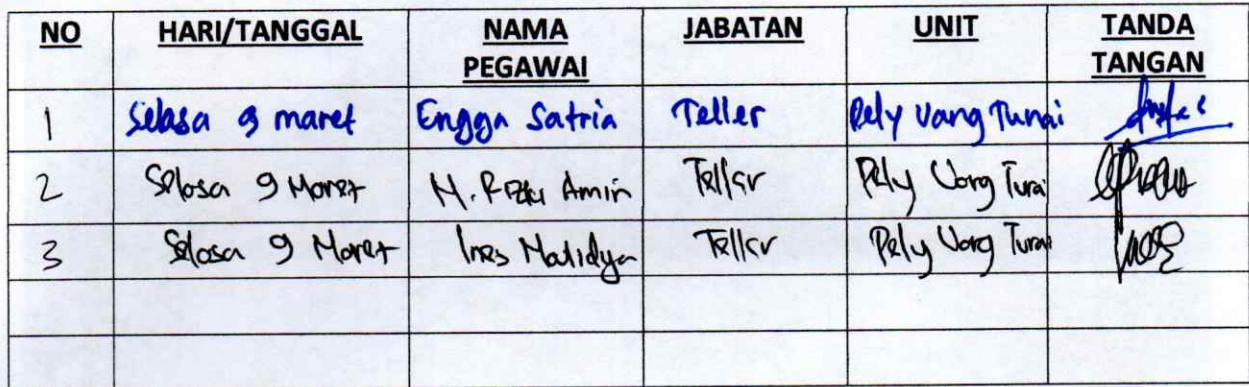 NO HARI/TANGGAL NAMA PEGAWAI JABATAN UNIT TANDA TANGAN
1 Selasa 9 maret Engga Satria Teller Pely Uang Tunai
2 Selasa 9 Maret M. Rizki Amin Teller Pely Uang Tunai
3 Selasa 9 Maret Ines Malidya Teller Pely Uang Tunai